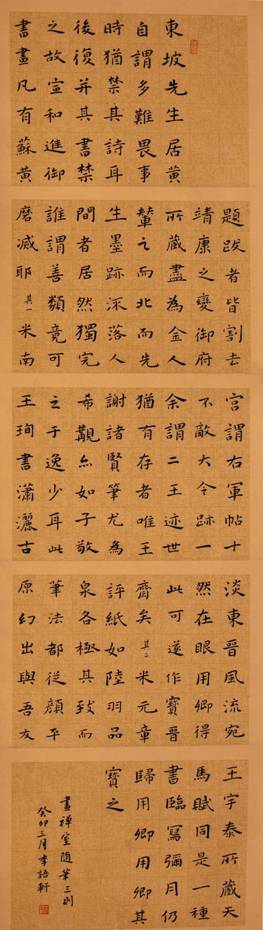 東坡先生居黃
自謂多難畏事
時猶禁其詩耳
後復并其書禁
之故宣和進御
書畫凡有蘇黃
題跋者皆割去
靖康之變御府
所藏盡為金人
輦之而北而先
生墨跡深落人
間者居然獨完
誰謂善類竟可
磨滅耶 其一 米南
宮謂右軍帖十
不敵大令跡一
余謂二王迹世
猶有存者唯王
謝諸賢筆尤為
希覯亦如子敬
之于逸少耳此
王珣書瀟灑古
淡東晉風流宛
然在眼用卿得
此可遂作寶晉
齋矣 其二 米元章
評紙如陸羽品
泉各極其致而
筆法都從顏平
原幻出與吾友
王宇泰所藏天
馬賦同是一種
書臨寫彌月仍
歸用卿用卿其
寶之
畫禪室隨筆三則
癸卯三月李語軒